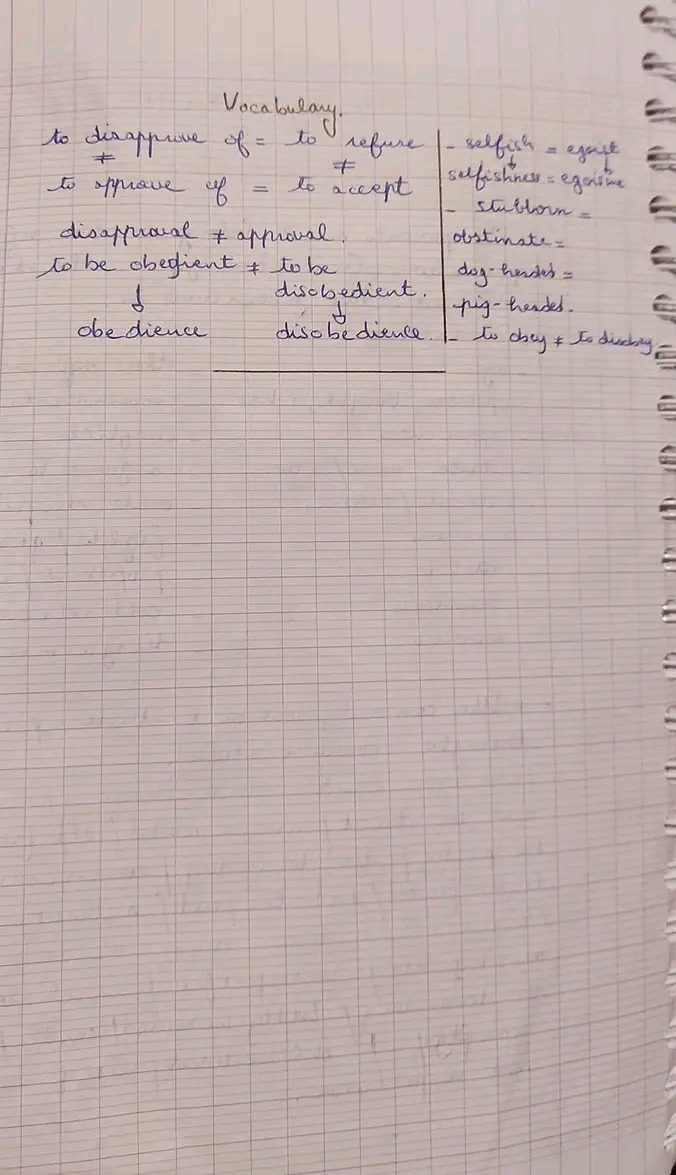 Vocabulary.
to disapprove of = to refuse
≠ ≠
to approve of = to accept
disapproval ≠ approval.
to be obedient ≠ to be
disobedient.
↓ ↓
obedience disobedience.
- selfish = egoist
↓ ↓
selfishness = egoisme
- stubborn =
obstinate =
dog-headed =
pig-headed.
- to obey ≠ to disobey